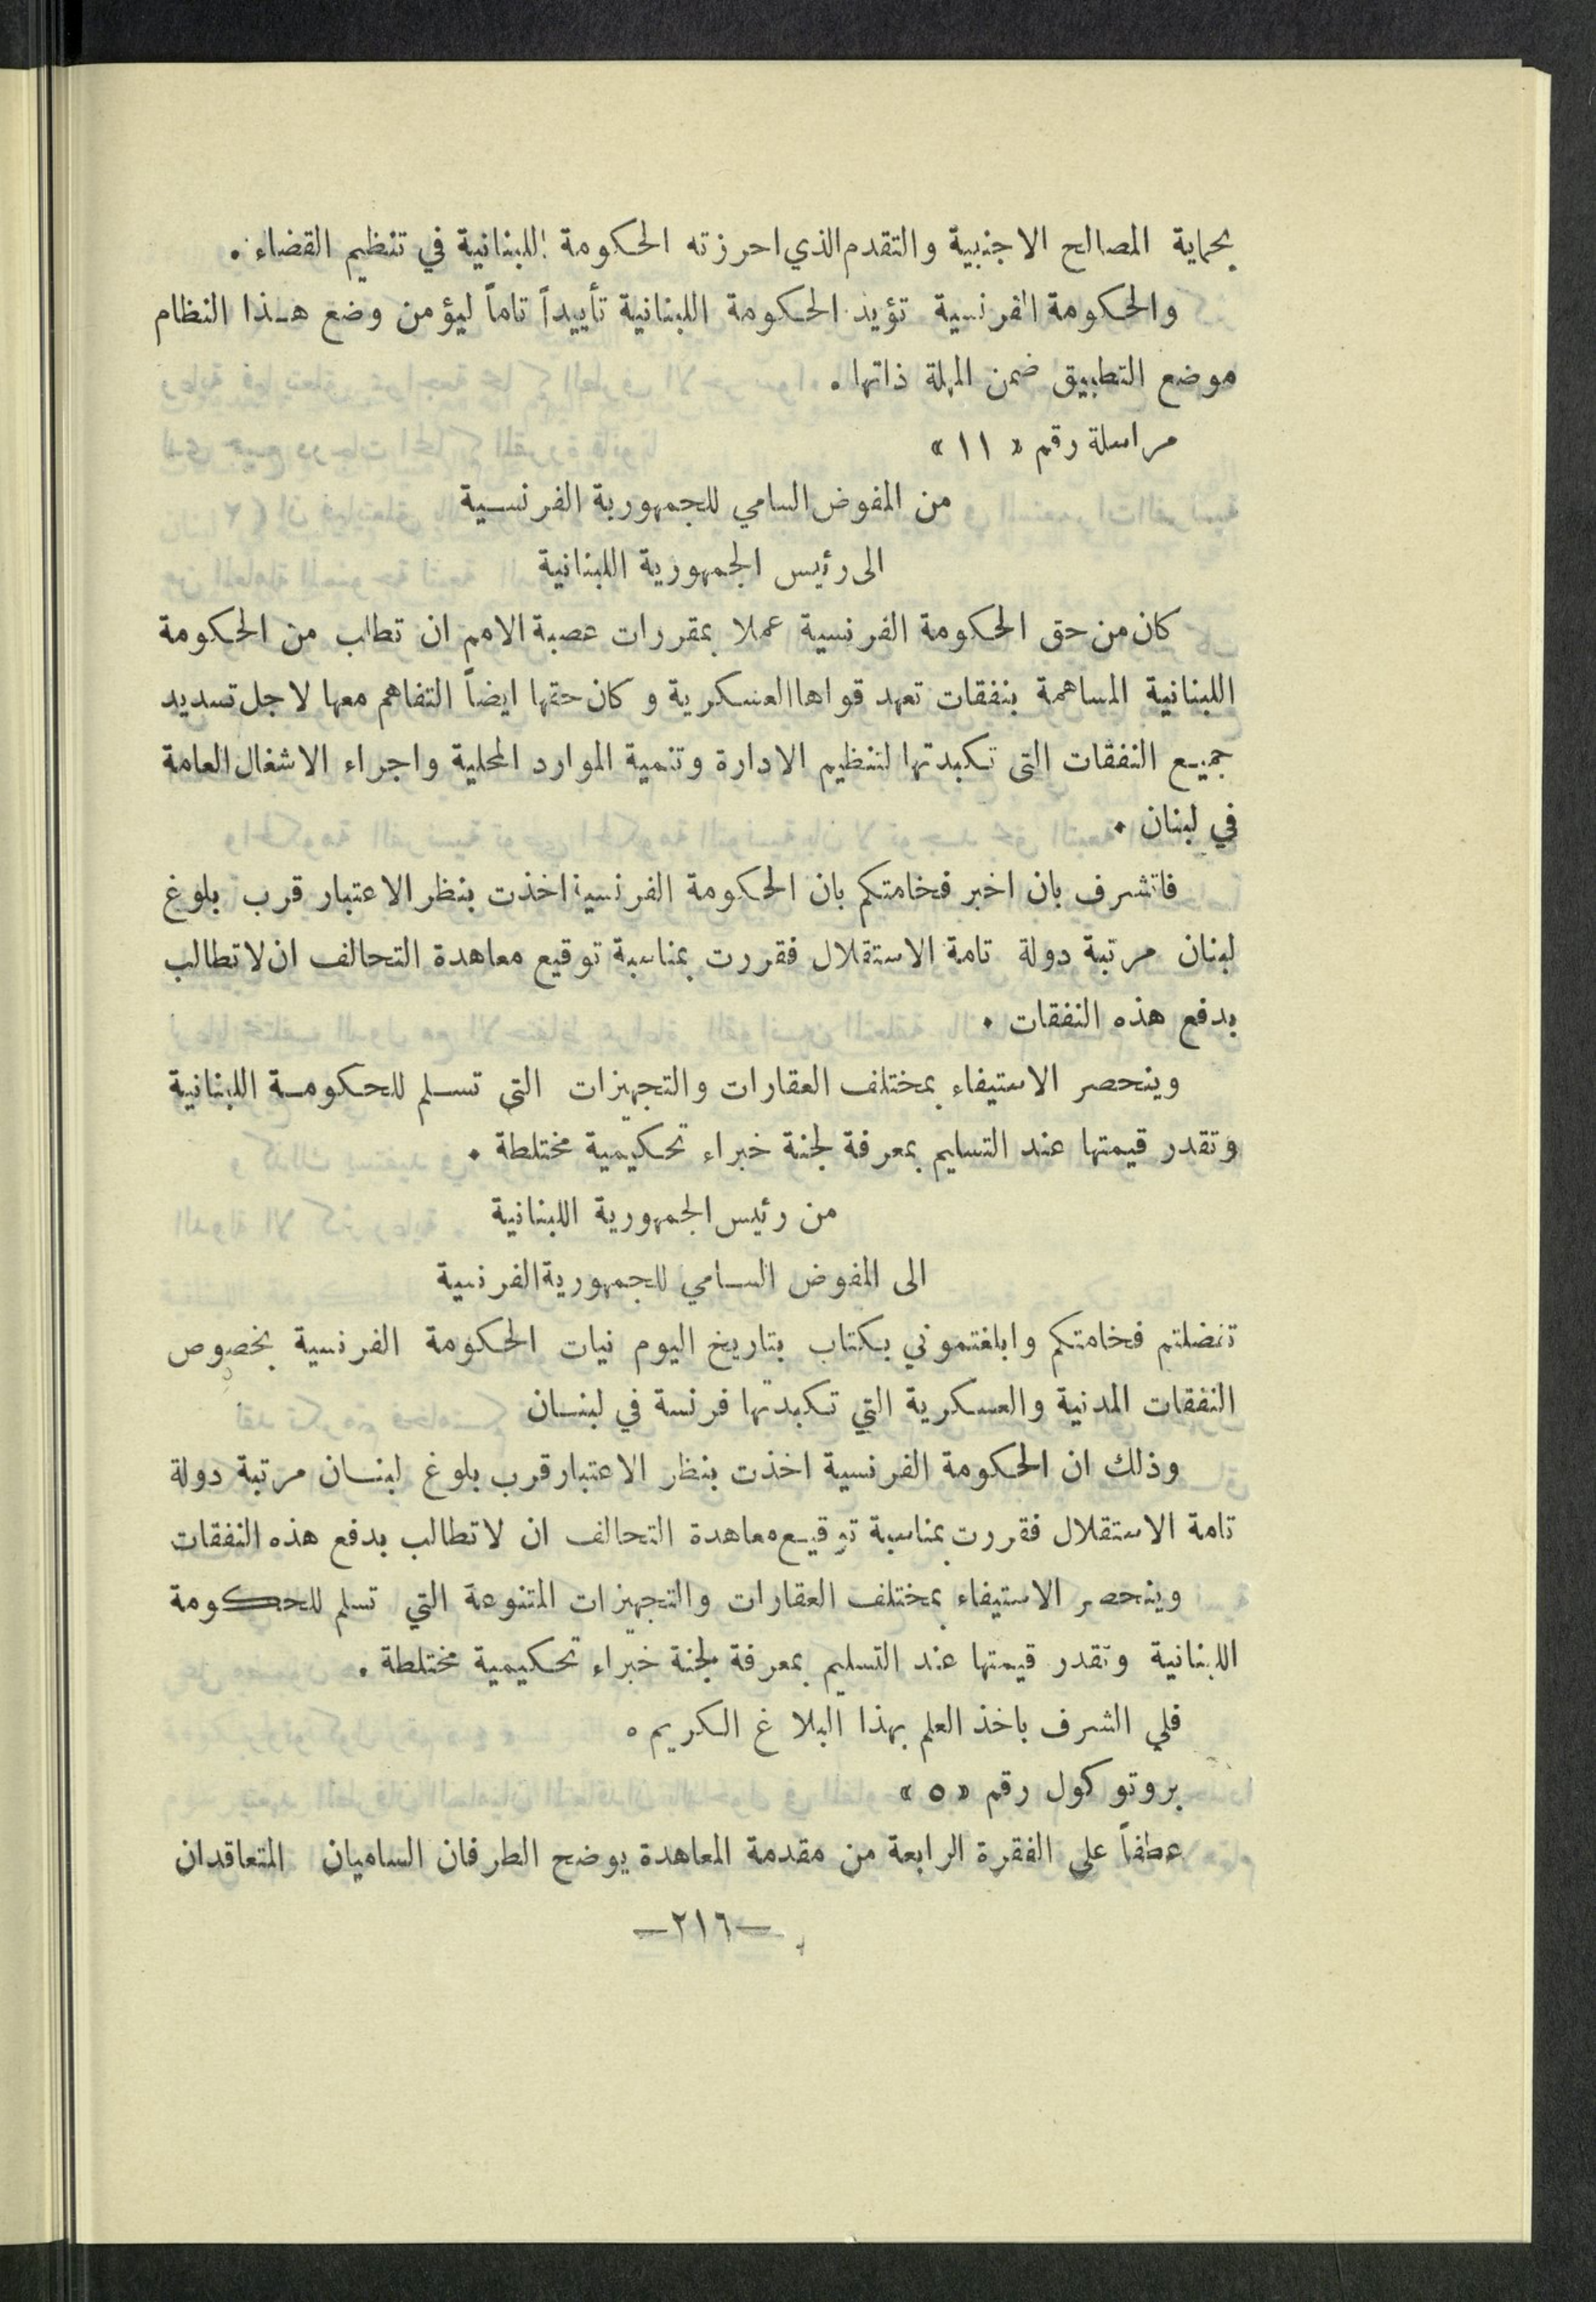 بحماية المصالح الاجنبية والتقدم الذي احرزته الحكومة اللبنانية في تنظيم القضاء .
والحكومة الفرنسية تؤيد الحكومة اللبنانية تأييداً تاماً ليؤمن وضع هـذا النظام
موضع التطبيق ضمن المهلة ذاتها .
مراسلة رقم « ١١ »
من المفوض السامي للجمهورية الفرنسية
الى رئيس الجمهورية اللبنانية
كان من حق الحكومة الفرنسية عملا بمقررات عصبة الامم ان تطلب من الحكومة
اللبنانية المساهمة بنفقات تعهد قواها العسكرية وكان حقها ايضاً التفاهم معها لاجل تسديد
جميع النفقات التي تكبدتها لتنظيم الادارة وتنمية الموارد المحلية واجراء الاشغال العامة
في لبنان .
فاتشرف بان اخبر فخامتكم بان الحكومة الفرنسية اخذت بنظر الاعتبار قرب بلوغ
لبنان مرتبة دولة تامة الاستقلال فقررت بمناسبة توقيع معاهدة التحالف ان لا تطالب
بدفع هذه النفقات .
وينحصر الاستيفاء بمختلف العقارات والتجهيزات التي تسلم للحكومة اللبنانية
وتقدر قيمتها عند التسليم بمعرفة لجنة خبراء تحكيمية مختلطة .
من رئيس الجمهورية اللبنانية
الى المفوض السامي للجمهورية الفرنسية
تفضلتم فخامتكم وابلغتموني بكتاب بتاريخ اليوم نيات الحكومة الفرنسية بخصوص
النفقات المدنية والعسكرية التي تكبدتها فرنسة في لبنان
وذلك ان الحكومة الفرنسية اخذت بنظر الاعتبار قرب بلوغ لبنان مرتبة دولة
تامة الاستقلال فقررت بمناسبة توقيع معاهدة التحالف ان لا تطالب بدفع هذه النفقات
وينحصر الاستيفاء بمختلف العقارات والتجهيزات المتنوعة التي تسلم للحكومة
اللبنانية وتقدر قيمتها عند التسليم بمعرفة لجنة خبراء تحكيمية مختلطة .
فلي الشرف باخذ العلم بهذا البلاغ الكريم .
بروتوكول رقم « ٥ »
عطفاً على الفقرة الرابعة من مقدمة المعاهدة يوضح الطرفان الساميان المتعاقدان
—٢١٦—